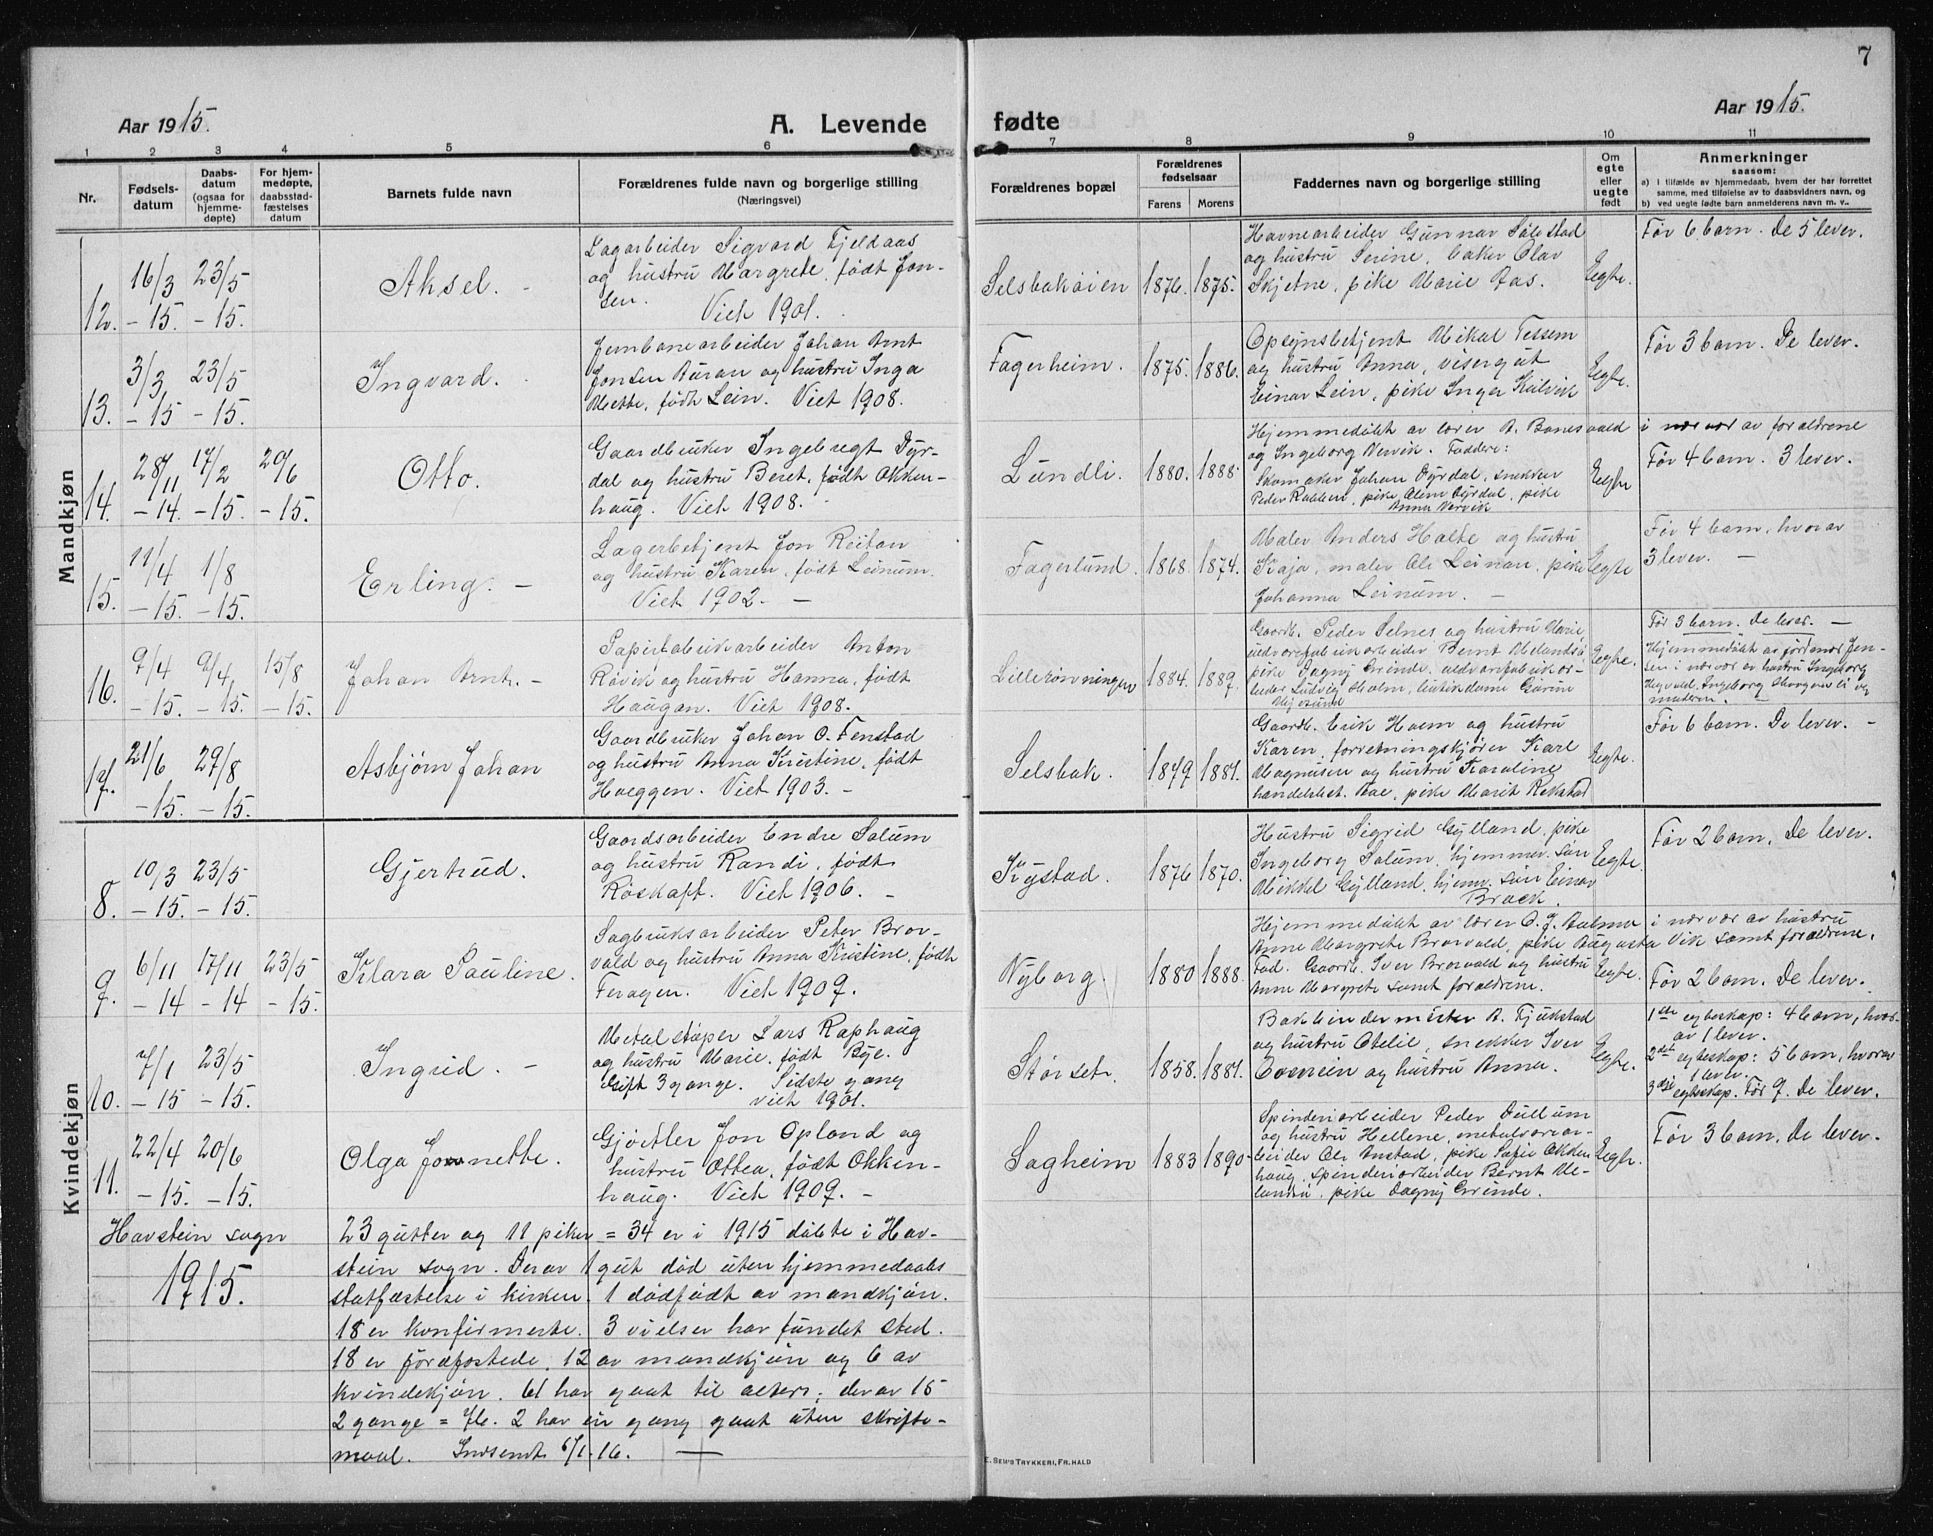 7
Aar 1915.
A. Levende fødte
Aar 1915.
1 2 3 4 5 6 7 8 9 10 11
Nr.
Fødsels-
datum
Daabs-
datum
(ogsaa for
hjemme-
døpte)
For hjem-
medøpte,
daabsstad-
fæstelses
datum
Barnets fulde navn
Forældrenes fulde navn og borgerlige stilling
(Næringsvei)
Forældrenes bopæl
Forældrenes
fødselsaar
Farens Morens
Faddernes navn og borgerlige stilling
Om
egte
eller
uegte
født
Anmerkninger
saasom:
a) I tilfælde av hjemmedaab, hvem der har forrettet
samme, med tilføielse av to daabsvidners navn, og
b) ved uegte fødte barn anmelderens navn m. v..
Mandkjøn
12. 16/3 - 15. 23/5 - 15.
Aksel.
Lagarbeider Sigvard Fjeldaas
og hustru Margrete, født Jon-
sen. Viet 1901.
Selsbakøien 1876. 1875.
Havnearbeider Gunnar Solstad
og hustru Serine, baker Olav
Skjetne, pike Marie Aas.
Egte.
Før 6 barn. De 5 lever.
13. 3/3 - 15 23/5 - 15.
Ingvard.
Jernbanearbeider Johan Arnt
Jonsen Auran og hustru Inga
Mette, født Lein. Viet 1908.
Fagerheim. 1875. 1886.
Opsynsbetjent Mikal Tessem
og hustru Anna, visergut
Einar Lein, pike Inger Kulvik
Egte.
Før 3 barn. De lever.
14. 28/11 - 14. 17/2 - 15. 20/6 - 15.
Otto.
Gaardbruker Ingebregt Dyr-
dal og hustru Beret, født Okken-
haug. Viet 1908.
Lundli. 1880. 1888.
Hjemmedøbt av lærer A. Bonesvald i nærvær av forældrene
og Ingeborg Vervik. Faddere:
Skomaker Johan Dyrdal, snekker
Peder Rabben, pike Oline Dyrdal, pike
Anna Vervik
Egte
Før 4 barn. 3 lever.
15. 11/4 - 15. 1/8 - 15.
Erling. -
Lagerbetjent Jon Reitan
og hustru Karen, født Leinum.
Viet 1902. -
Fagerlund. 1868. 1874.
Maler Anders Halte og hustru
Kaja, maler Ole Leinan, pike
Johanna Leinum. -
Egte
Før 4 barn, hvorav
3 lever. -
16. 9/4 - 15. 9/4 - 15. 15/8 - 15.
Johan Arnt. -
Papirfabrikarbeider Anton
Røvik og hustru Hanna, født
Haugan. Viet 1908.
Lillerønningen 1884. 1889.
Gaardb. Peder Selnes og hustru Marie,
uldvarefabrikarbeider Bernt Melandsø
pike Dagny Grinde, uldvarefabrikar-
beider Ludvig Holm, butikdame Gurine
Mjøsund
Egte.
Før 3 barn. De lever. -
Hjemmedøbt av jordmor Jen-
sen i nærvær av hustru Ingeborg
moderen. -
17. 21/6 - 15 29/8 - 15.
Asbjørn Johan
Gaardbruker Johan O. Fenstad
og hustru Anna Kirstine, født
Hoeggen. Viet 1903. -
Selsbak. 1879. 1881.
Gaardb. Erik Hoem og hustru
Karen, forretningskjører Karl
Magnusen og hustru Karoline
handelsbet. Aae, pike Marit Rekstad
Egte.
Før 6 barn. De lever. -
Kvindekjøn
8. 10/3 - 15. 23/5 - 15.
Gjertrud.
Gaardsarbeider Endre Solum
og hustru Randi, født
Røskaft. Viet 1906. -
Kystad. 1876 1870.
Hustru Sigrid Gylland, pike
Ingeborg Solum, hjemmev. søn
Mikkel Gylland, hjemv. søn Einar
Brock.
Egte.
Før 2 barn. De lever.
9. 6/11 - 14 17/11 - 14 23/5 - 15.
Klara Pauline.
Sagbruksarbeider Peter Bror-
vald og hustru Anna Kristine, født
Feragen. Viet 1909.
Nyborg. 1880 1888.
Hjemmedøbt av lærer O. J. Aalmo i nærvær av hustru
Anne Margrete Brorvald, pike Augusta Vik samt forældrene.
Fad. Gaardb. Iver Brorvald og hustru
Anne Margrete samt forældrene.
Egte.
Før 2 barn. De lever.
10. 7/1 - 15 23/5 - 15.
Ingrid. -
Metalstøper Lars Raphaug
og hustru Marie, født Bye.
Gift 3 gange. Sidste gang
viet 1901.
Størset. 1858. 1881.
Bokbindermester A. Fjukstad
og hustru Otelie, snekker Iver
og hustru Anna.
Egte.
1ste egteskap: 4 barn, hvor-
av 1 lever.
2det egteskap: 5 barn, hvorav
1 lever.
3dje egteskap. Før 9. De lever.
11. 22/4 - 15. 20/6 - 15.
Olga Jonette.
Gjørtler Jon Opland og
hustru Ottea, født Okken-
haug. Viet 1909. -
Sagheim 1883 1890
Spinderiarbeider Peder Dullum
og hustru Hellene, metalvarear-
beider Ole Anstad, pike Sofie Okken
haug, spinderiarbeider Bernt Me-
landsø, pike Dagny Grinde.
Egte.
Før 3 barn. De lever.
Havstein sogn
1915.
23 gutter og 11 piker = 34 er i 1915 døbte i Hav-
stein sogn. Derav 1 gut død uten hjemmedaabs
statfæstelse i kirken. 1 dødfødt av mandkjøn.
18 er konfirmerte. 3 vielser har fundet sted.
18 er jordfæstede, 12 av mandkjøn og 6 av
kvindekjøn. 61 har gaat til alters; derav 15
2 gange = 76. 2 har en gang gaat uten skrifte-
maal. Indsendt 6/1-16.
E. SEM'S TRYKKERI, FR. HALD